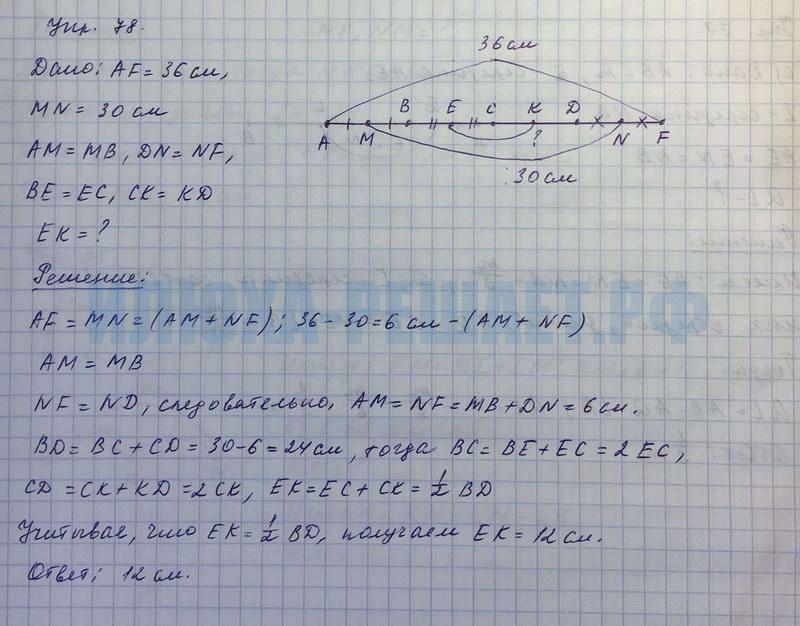 Упр. 78.
Дано: AF = 36 см,
MN = 30 см
AM = MB, DN = NF,
BE = EC, CK = KD
EK = ?
36 см
A M B E C K D N F
?
30 см
Решение:
ИЛЮХА-РЕШАЕТ.РФ
AF = MN = (AM + NF); 36 - 30 = 6 см - (AM + NF)
AM = MB
NF = ND, следовательно, AM = NF = MB + DN = 6 см.
BD = BC + CD = 30 - 6 = 24 см, тогда BC = BE + EC = 2 EC,
CD = CK + KD = 2 CK, EK = EC + CK = 1/2 BD
Учитывая, что EK = 1/2 BD, получаем EK = 12 см.
Ответ; 12 см.